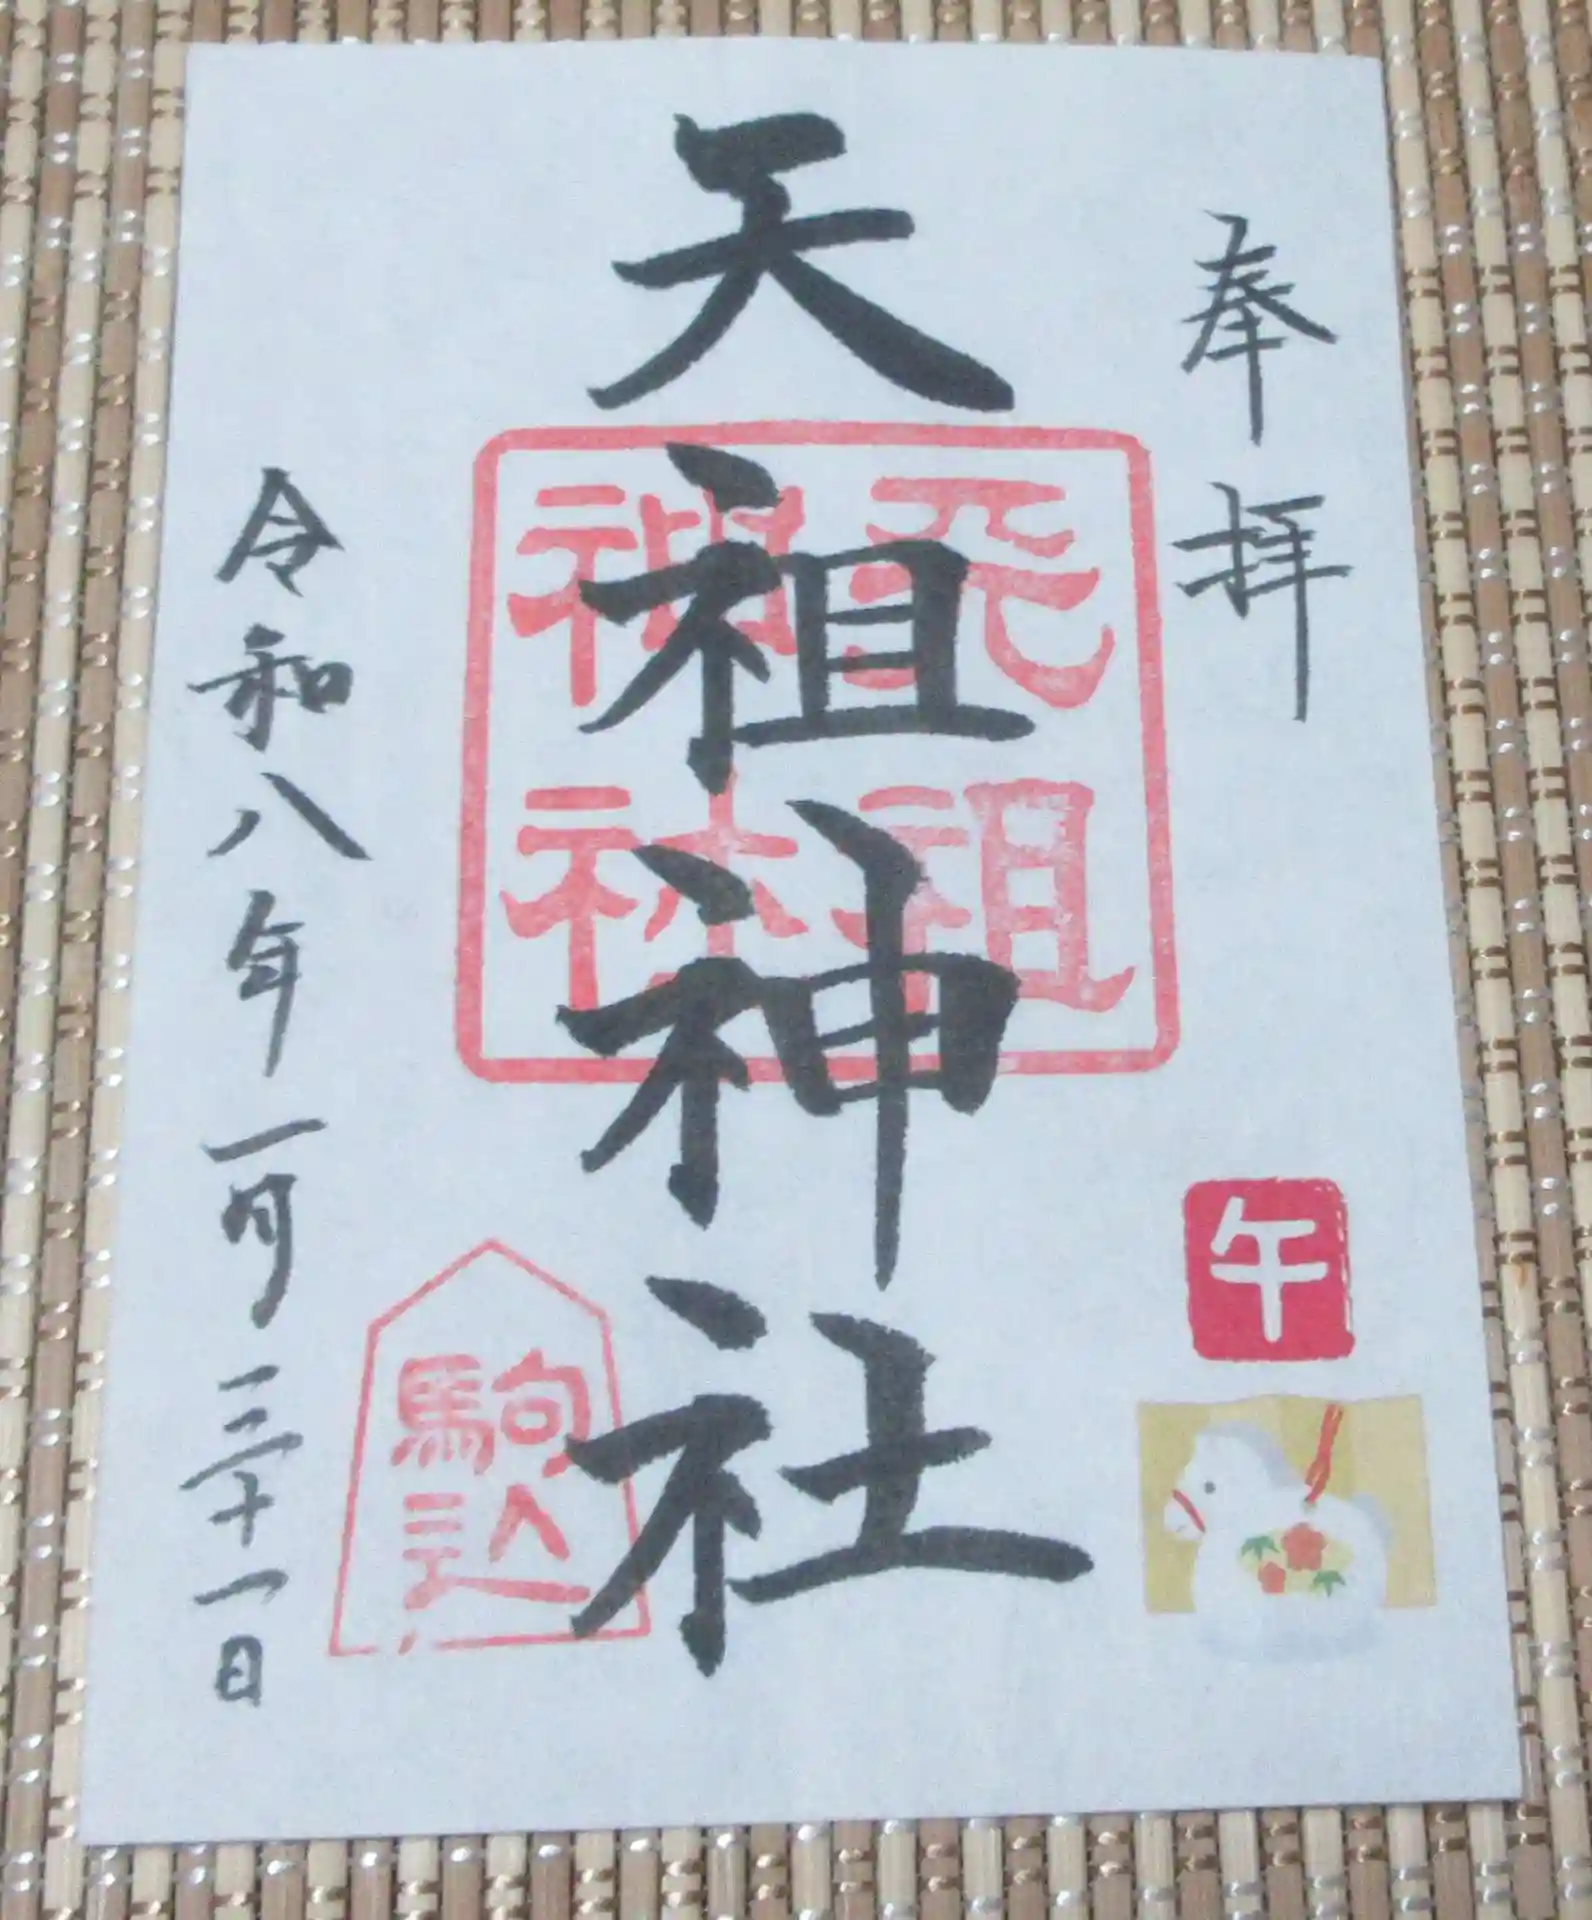 奉拝
午
天祖神社
天祖
神社
駒込
令和八年一月三十一日